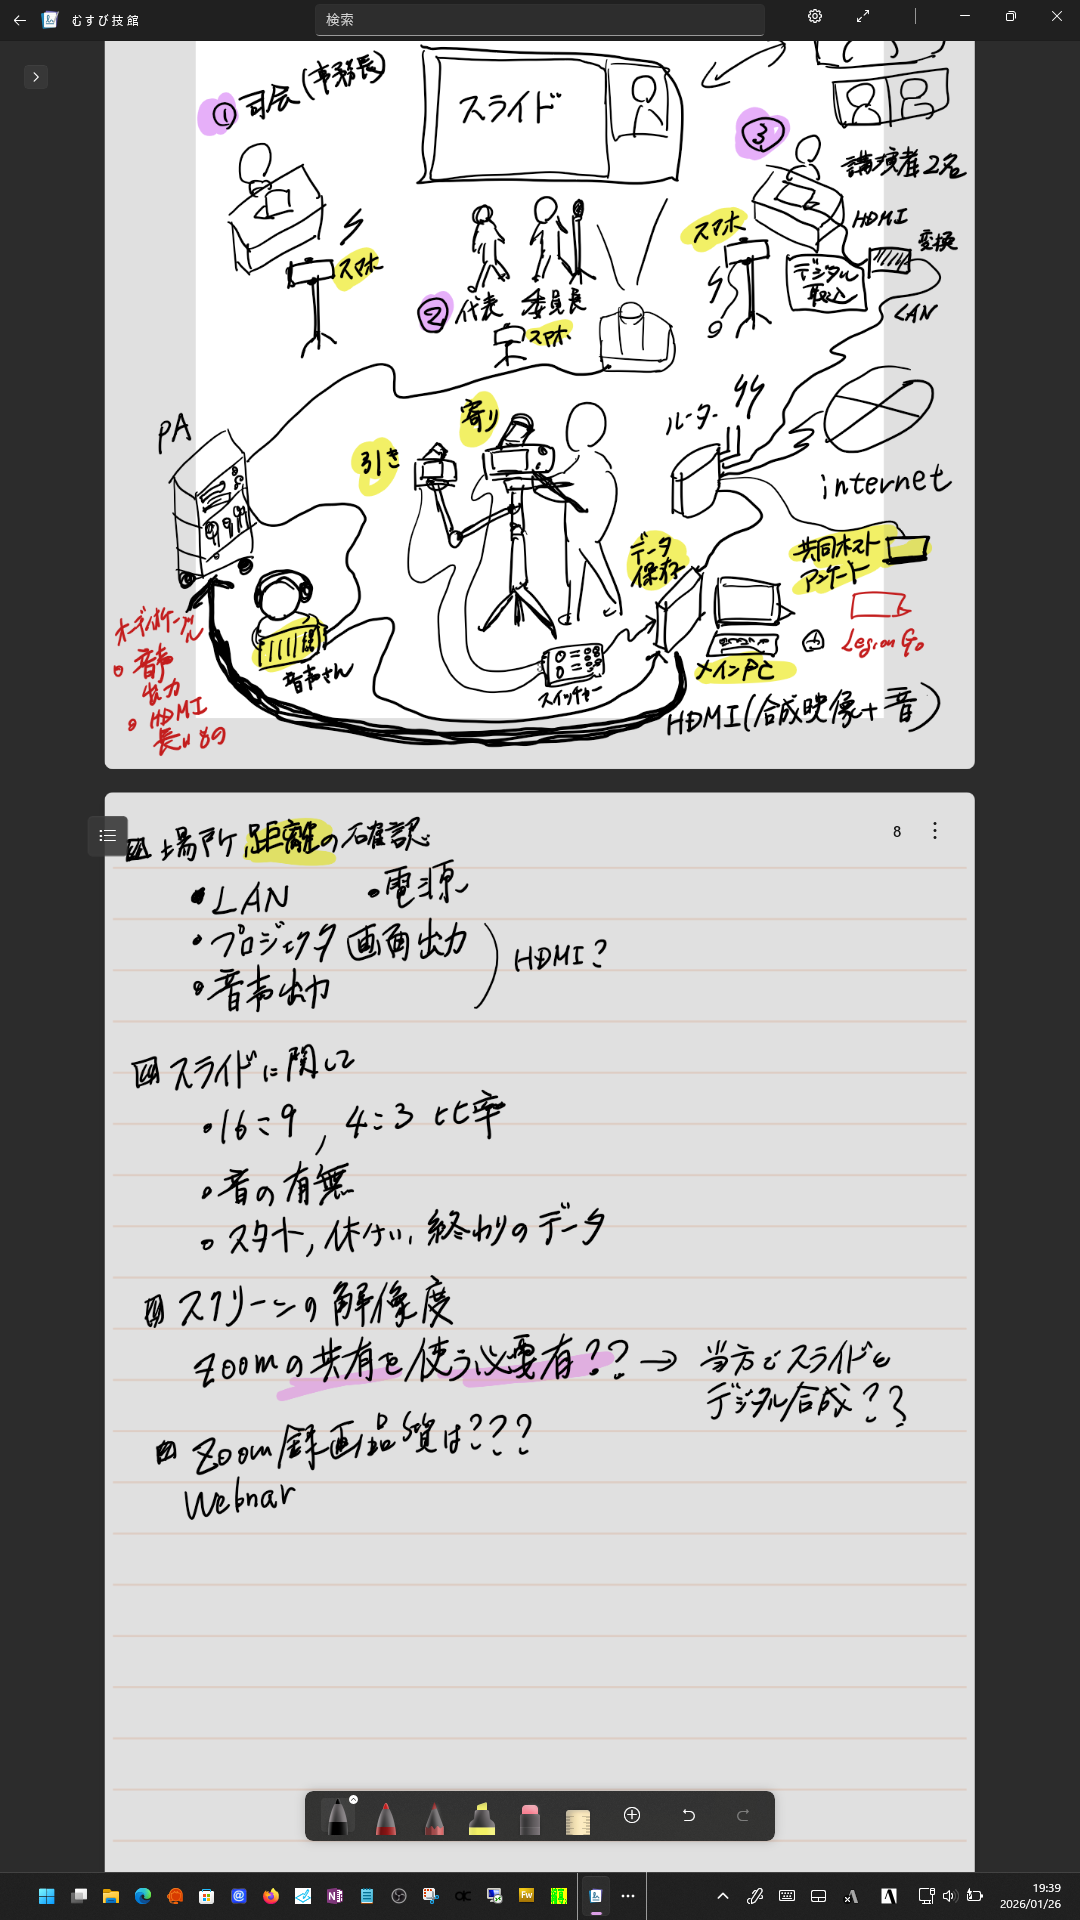 むすび技館
検索
① 司会(事務長)
スライド
③
講演者2名
HDMI
変換
スマホ
スマホ
デジタル
取込
LAN
② 代表 委員長
スマホ
PA
引き
寄り
ルーター
internet
データ
保存
共同ホスト
アンケート
Legion Go
オーディオケーブル
音声
出力
HDMI
長いもの
音声さん
スイッチャー
メインPC
HDMI(合成映像+音)
8
場所,距離の確認
・LAN ・電源
・プロジェクタ画面出力
HDMI?
・音声出力
スライドに関して
・16:9, 4:3 比率
・音の有無
・スタート, 休けい, 終わりのデータ
スクリーンの解像度
Zoomの共有を使う必要有?? → 当方でスライドを
デジタル合成??
Zoom録画品質は???
Webnar
19:39
2026/01/26